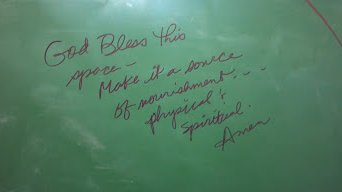 God Bless This
space -
Make it a source
of nourishment . . .
physical &
spiritual.
Amen